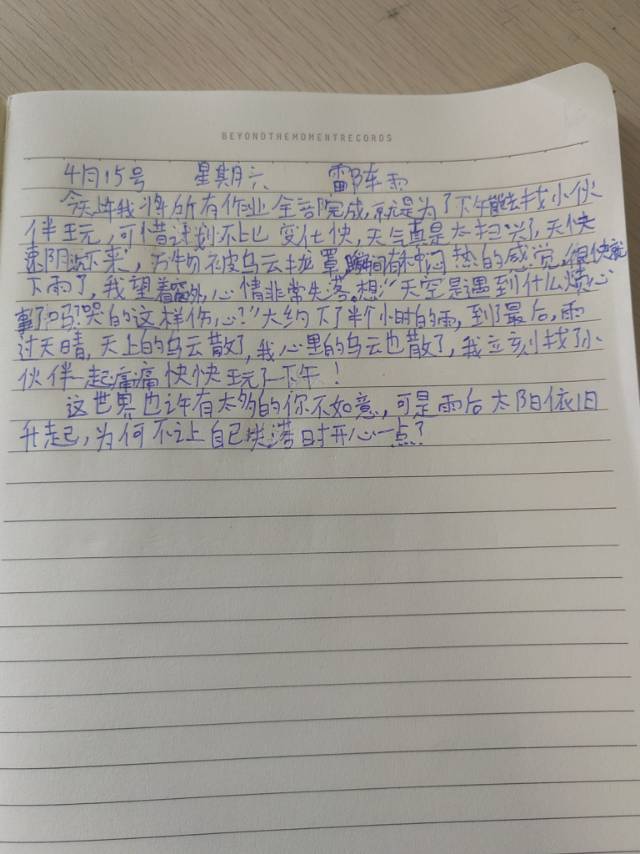 BEYONDTHEMOMENTRECORDS
4月15号 星期六 雷阵雨
今天上午我将所有作业全部完成,就是为了下午能去找小伙
伴玩,可惜计划不上变化快,天气真是太扫兴了,天快
速阴沉下来,万物被乌云拢罩,瞬间有种闷热的感觉,很快就
下雨了,我望着窗外心情非常失落。想:“天空是遇到什么烦心
事了吗?哭的这样伤心?”大约下了半个小时的雨,到了最后,雨
过天晴,天上的乌云散了,我心里的乌云也散了,我立刻找了小
伙伴一起痛痛快快玩了一下午!
这世界也许有太多的你不如意,可是雨后太阳依旧
升起,为何不让自己失落时开心一点?